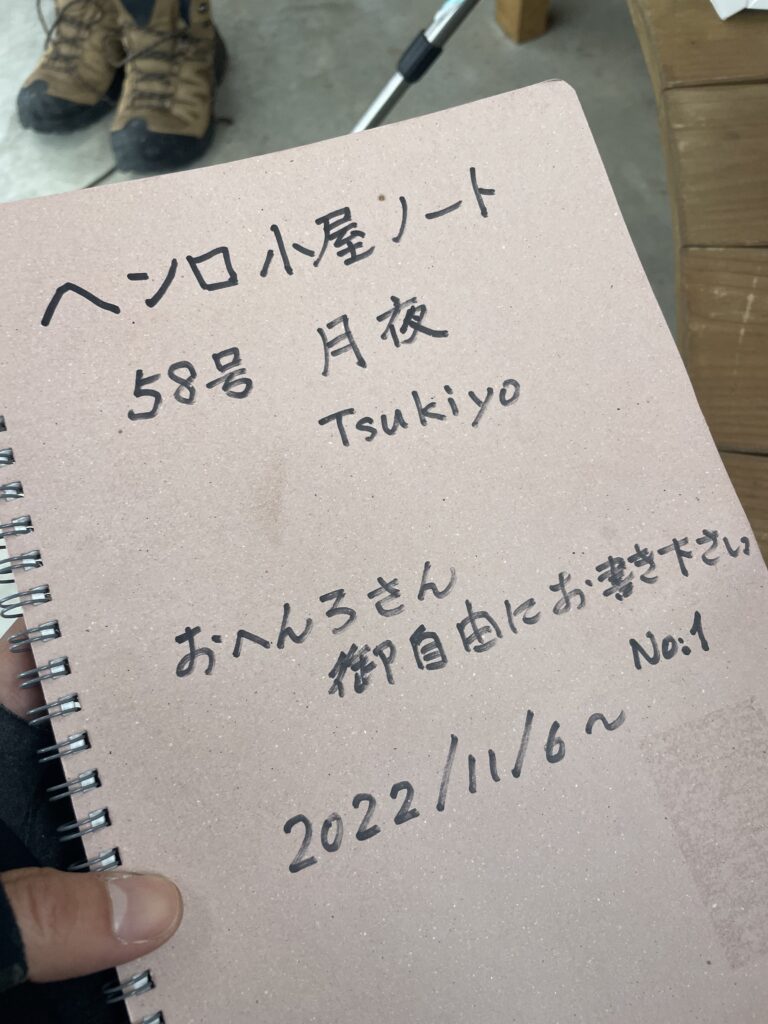 ヘンロ小屋ノート
58号 月夜
Tsukiyo
おへんろさん
御自由にお書き下さい
No:1
2022/11/6～